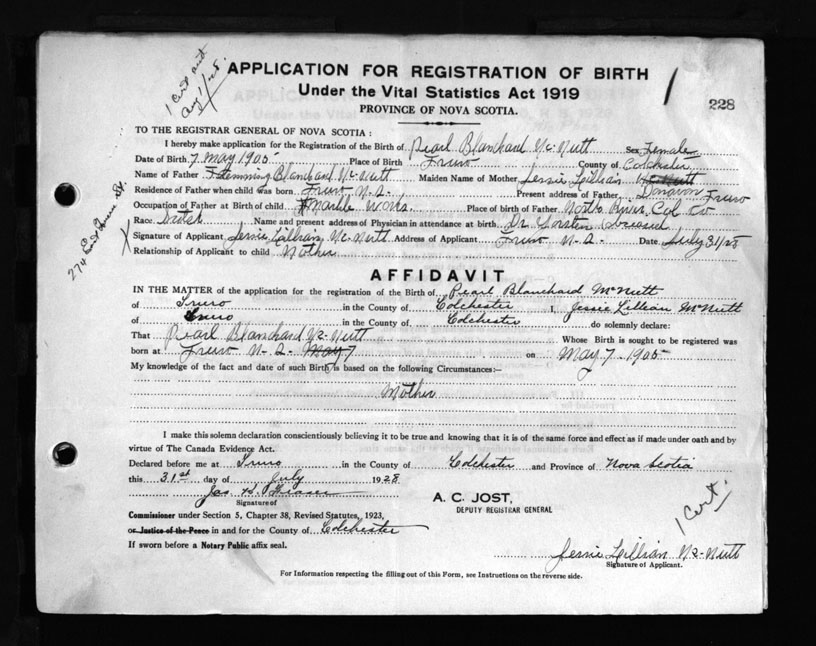 1 Cert sent
Aug 1/28.
APPLICATION FOR REGISTRATION OF BIRTH
Under the Vital Statistics Act 1919
PROVINCE OF NOVA SCOTIA.
228
TO THE REGISTRAR GENERAL OF NOVA SCOTIA :
I hereby make application for the Registration of the Birth of Pearl Blanchard McNutt Sex Female
Date of Birth 7 May 1905 Place of Birth Truro County of Colchester
Name of Father Flemming Blanchard McNutt Maiden Name of Mother Jessie Lillian McNutt
Residence of Father when child was born Truro N.S. Present address of Father Truro
Occupation of Father at Birth of child Marble Works Place of Birth of Father North River Col Co
Race Name and present address of Physician in attendance at birth Dr deceased
X Signature of Applicant Jessie Lillian McNutt Address of Applicant Truro N.S. Date July 31/28
Relationship of Applicant to child Mother
274 St.
AFFIDAVIT
IN THE MATTER of the application for the registration of the Birth of Pearl Blanchard McNutt
of Truro in the County of Colchester I, Jessie Lillian McNutt
of Truro in the County of Colchester do solemnly declare:
That Pearl Blanchard McNutt Whose Birth is sought to be registered was
born at Truro N.S. May 7 on May 7 1905
My knowledge of the fact and date of such Birth is based on the following Circumstances:—
Mother
I make this solemn declaration conscientiously believing it to be true and knowing that it is of the same force and effect as if made under oath and by
virtue of The Canada Evidence Act.
Declared before me at Truro in the County of Colchester and Province of Nova Scotia
this 31st day of July 1928
Jas H. Fraser
Signature of
A. C. JOST,
DEPUTY REGISTRAR GENERAL
1 Cert.
Commissioner under Section 5, Chapter 38, Revised Statutes, 1923,
or Justice of the Peace in and for the County of Colchester
If sworn before a Notary Public affix seal.
Jessie Lillian McNutt
Signature of Applicant.
For Information respecting the filling out of this Form, see Instructions on the reverse side.